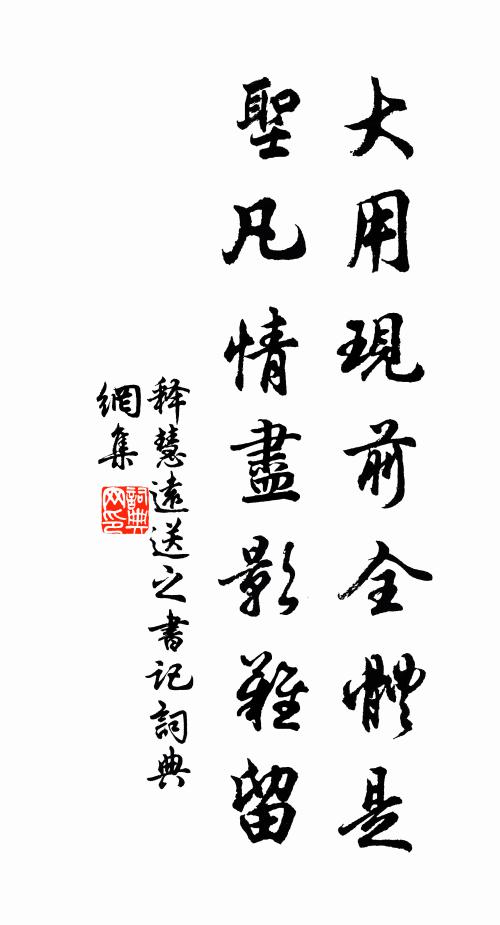 大用現前全體是
聖凡情盡影難留
释慧遠送之書記詞典
網集
詞典网印